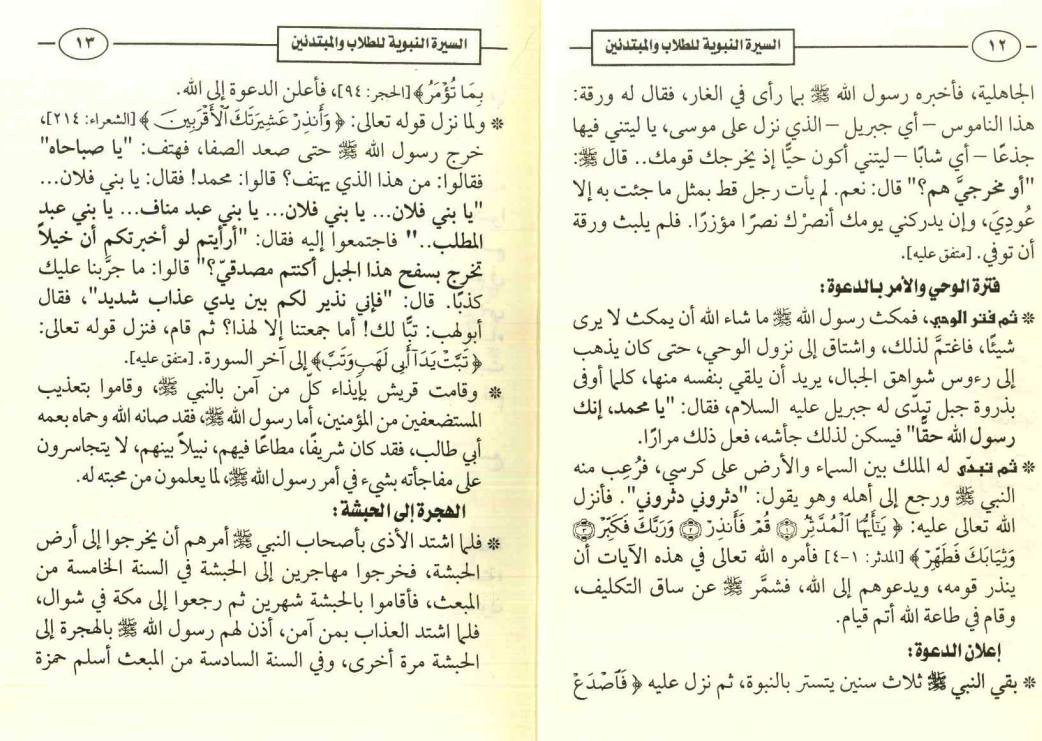 السيرة النبوية للطلاب والمبتدئين
١٢
الجاهلية، فأخبره رسول الله ﷺ بما رأى في الغار، فقال له ورقة:
هذا الناموس – أي جبريل – الذي نزل على موسى، يا ليتني فيها
جذعًا – أي شابًا – ليتني أكون حيًّا إذ يخرجك قومك.. قال ﷺ:
"أو مخرجيَّ هم؟" قال: نعم. لم يأت رجل قط بمثل ما جئت به إلا
عُودِيَ، وإن يدركني يومك أنصرْك نصرًا مؤزرًا. فلم يلبث ورقة
أن توفي. [متفق عليه].
فترة الوحي والأمر بالدعوة:
* ثم فتر الوحي، فمكث رسول الله ﷺ ما شاء الله أن يمكث لا يرى
شيئًا، فاغتمَّ لذلك، واشتاق إلى نزول الوحي، حتى كان يذهب
إلى رءوس شواهق الجبال، يريد أن يلقي بنفسه منها، كلما أوفى
بذروة جبل تبدّى له جبريل عليه السلام، فقال: "يا محمد، إنك
رسول الله حقًّا" فيسكن لذلك جأشه، فعل ذلك مرارًا.
* ثم تبدّى له الملك بين السماء والأرض على كرسي، فرُعِب منه
النبي ﷺ ورجع إلى أهله وهو يقول: "دثروني دثروني". فأنزل
الله تعالى عليه: ﴿ يَٰٓأَيُّهَا ٱلْمُدَّثِّرُ ۝١ قُمْ فَأَنذِرْ ۝٢ وَرَبَّكَ فَكَبِّرْ ۝٣
وَثِيَابَكَ فَطَهِّرْ ﴾ [المدثر: ١-٤] فأمره الله تعالى في هذه الآيات أن
ينذر قومه، ويدعوهم إلى الله، فشمَّر ﷺ عن ساق التكليف،
وقام في طاعة الله أتم قيام.
إعلان الدعوة:
* بقي النبي ﷺ ثلاث سنين يتستر بالنبوة، ثم نزل عليه ﴿ فَٱصْدَعْ
السيرة النبوية للطلاب والمبتدئين
١٣
بِمَا تُؤْمَرُ ﴾ [الحجر: ٩٤]، فأعلن الدعوة إلى الله.
* ولما نزل قوله تعالى: ﴿ وَأَنذِرْ عَشِيرَتَكَ ٱلْأَقْرَبِينَ ﴾ [الشعراء: ٢١٤]،
خرج رسول الله ﷺ حتى صعد الصفا، فهتف: "يا صباحاه"
فقالوا: من هذا الذي يهتف؟ قالوا: محمد! فقال: يا بني فلان...
"يا بني فلان... يا بني فلان... يا بني عبد مناف... يا بني عبد
المطلب.." فاجتمعوا إليه فقال: "أرأيتم لو أخبرتكم أن خيلاً
تخرج بسفح هذا الجبل أكنتم مصدقيّ؟" قالوا: ما جرَّبنا عليك
كذبًا. قال: "فإني نذير لكم بين يدي عذاب شديد"، فقال
أبولهب: تبًّا لك! أما جمعتنا إلا لهذا؟ ثم قام، فنزل قوله تعالى:
﴿ تَبَّتْ يَدَآ أَبِي لَهَبٍ وَتَبَّ ﴾ إلى آخر السورة. [متفق عليه].
* وقامت قريش بإيذاء كلّ من آمن بالنبي ﷺ، وقاموا بتعذيب
المستضعفين من المؤمنين، أما رسول الله ﷺ، فقد صانه الله وحماه بعمه
أبي طالب، فقد كان شريفًا، مطاعًا فيهم، نبيلاً بينهم، لا يتجاسرون
على مفاجأته بشيء في أمر رسول الله ﷺ، لما يعلمون من محبته له.
الهجرة إلى الحبشة:
* فلما اشتد الأذى بأصحاب النبي ﷺ أمرهم أن يخرجوا إلى أرض
الحبشة، فخرجوا مهاجرين إلى الحبشة في السنة الخامسة من
المبعث، فأقاموا بالحبشة شهرين ثم رجعوا إلى مكة في شوال،
فلما اشتد العذاب بمن آمن، أذن لهم رسول الله ﷺ بالهجرة إلى
الحبشة مرة أخرى، وفي السنة السادسة من المبعث أسلم حمزة